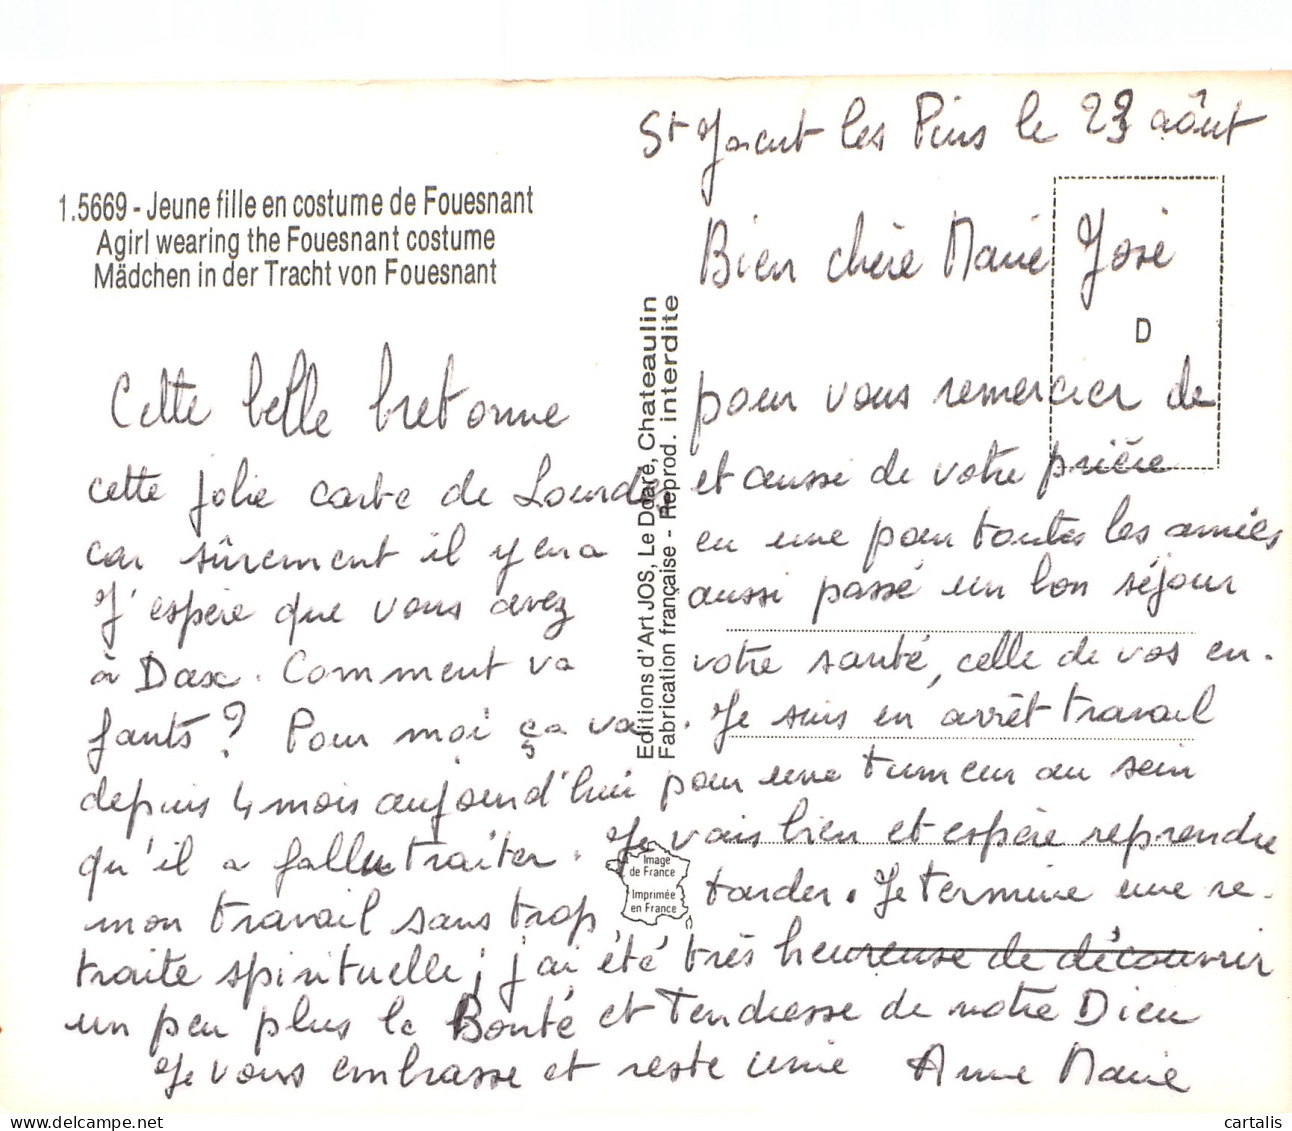 St Jacut les Pins le 23 août
1.5669 - Jeune fille en costume de Fouesnant
Agirl wearing the Fouesnant costume
Mädchen in der Tracht von Fouesnant
Bien chère Marie José
D
Cette belle bretonne pour vous remercier de
cette jolie carte de Lourdes et aussi de votre prière
car sûrement il y en a eu une pour toutes les amies
J'espère que vous avez aussi passé un bon séjour
à Dax. Comment va votre santé, celle de vos en-
fants ? Pour moi ça va. Je suis en arrêt travail
depuis 4 mois aujourd'hui pour une tumeur au sein
qu'il a fallu traiter. Je vais bien et espère reprendre
mon travail sans trop tarder. Je termine une re-
traite spirituelle ; j'ai été très heureuse de découvrir
un peu plus la Bonté et Tendresse de notre Dieu
Je vous embrasse et reste unie Anne Marie
Editions d'Art JOS, Le Doaré, Chateaulin
Fabrication française - Reprod. interdite
Image
de France
Imprimée
en France
cartalis